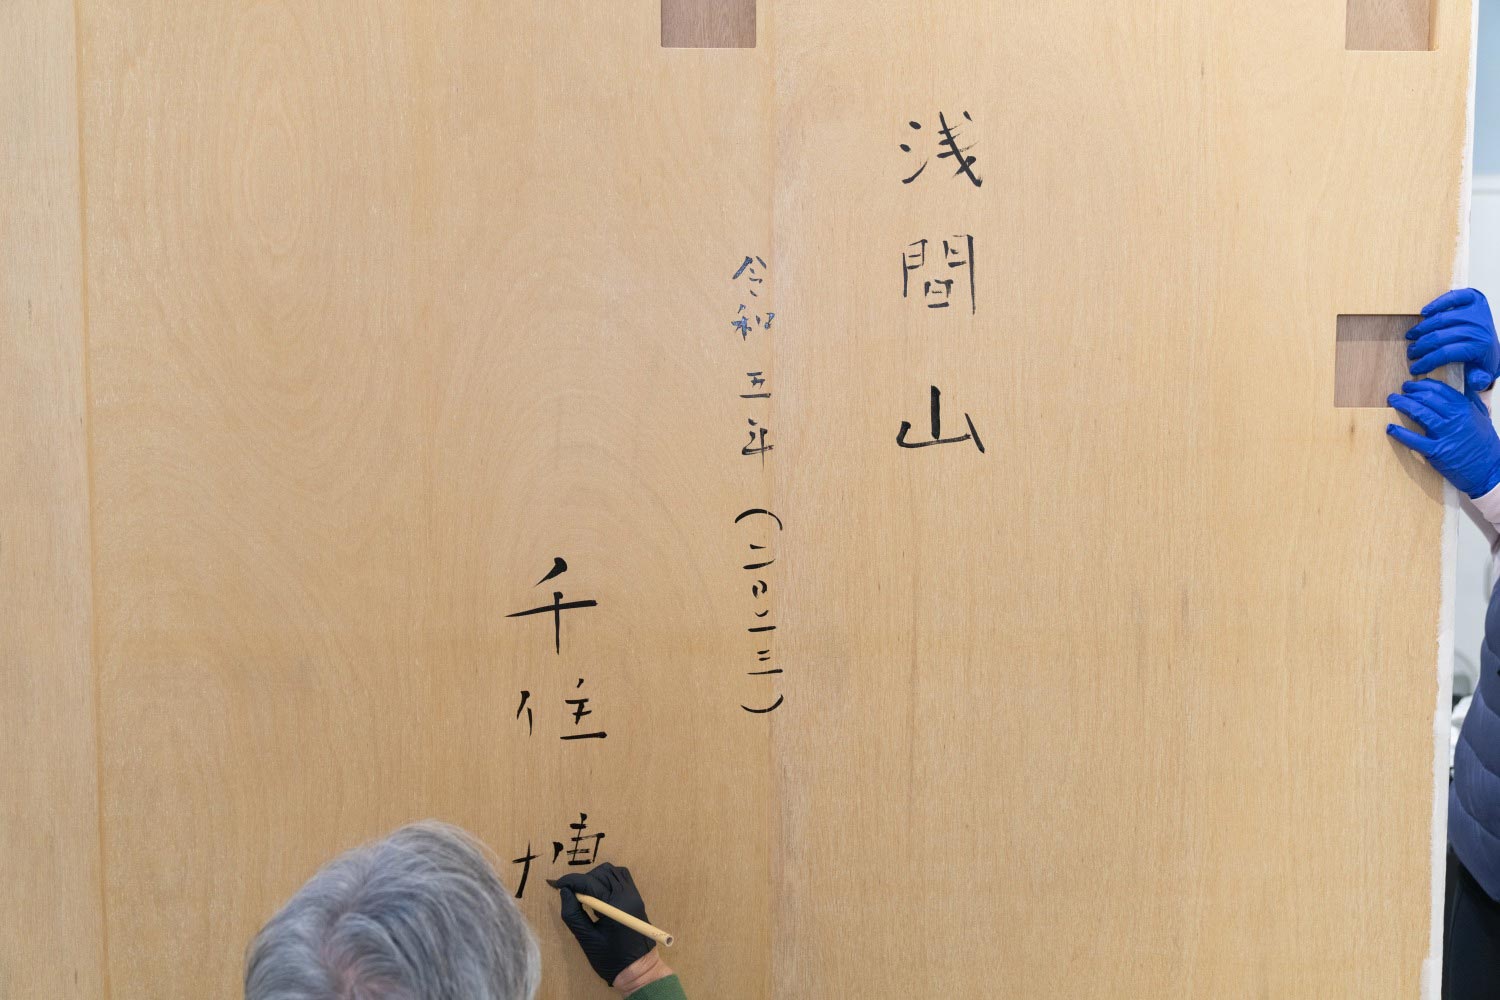 浅間山
令和五年（二〇二三）
千住博